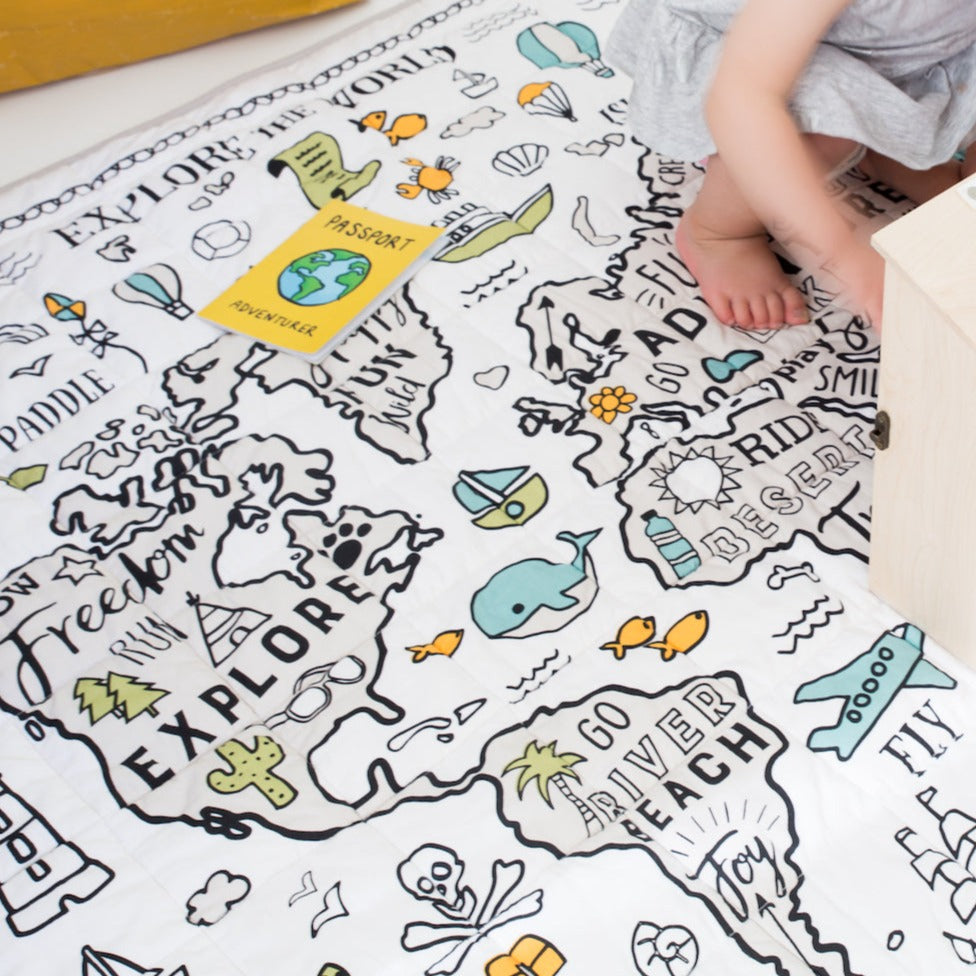 EXPLORE THE WORLD
PASSPORT
ADVENTURER
PADDLE
FUN
Wild
GO
play
SMIL
RID
DESERT
Freedom
RUN
EXPLORE
GO
RIVER
BEACH
Joy
FLY